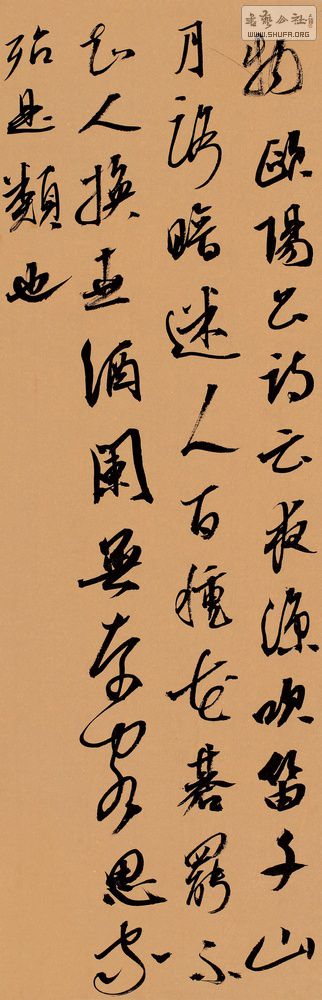 物歐陽公詩云夜涼吹笛千山
月路暗迷人百種花碁罷不
知人換世酒闌無奈客思家
殆是類也
書藝公社
WWW.SHUFA.ORG